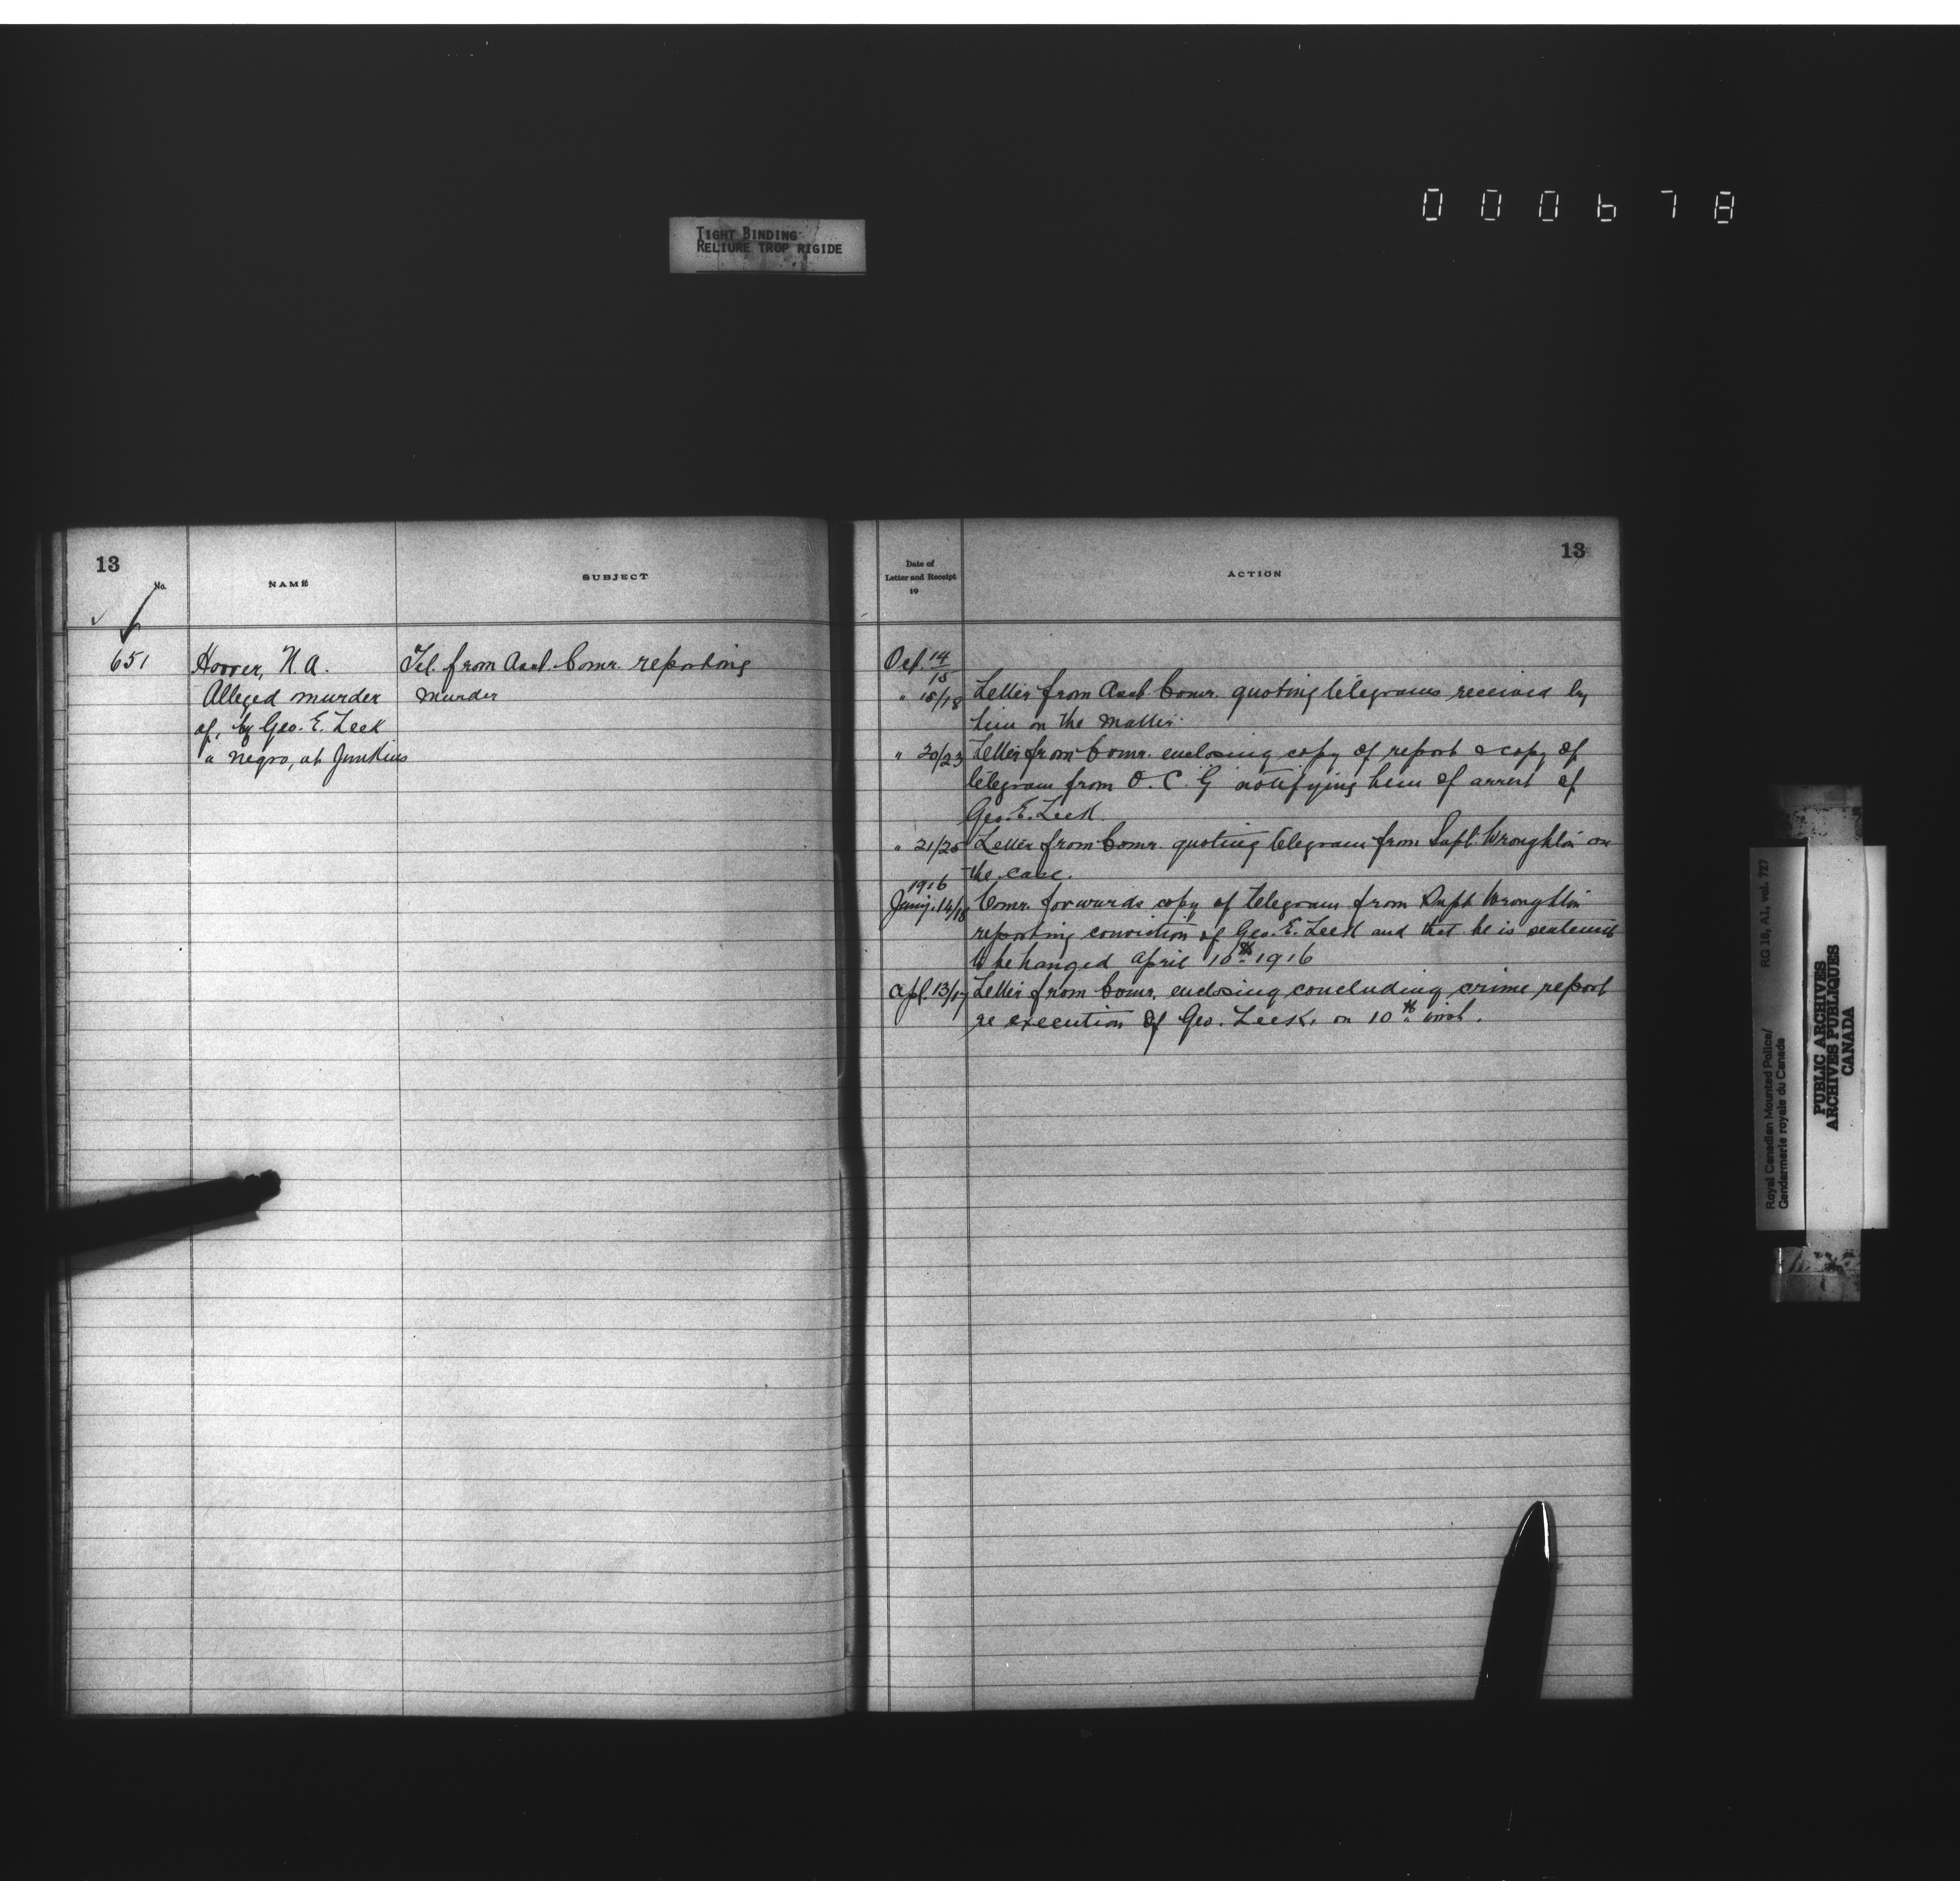 000678
TIGHT BINDING
RELIURE TROP RIGIDE
13
No.
NAME
SUBJECT
651
Hoover, N.A.
Alleged murder
of, by Geo. E. Leek
a negro, at Junkins
Tel. from Asst. Comr. reporting
murder
Date of
Letter and Receipt
19
ACTION
13
Oct. 14/15
" 15/18 Letter from Asst. Comr. quoting telegrams received by
him on the matter.
" 20/23 Letter from Comr. enclosing copy of report & copy of
telegram from O. C. G notifying him of arrest of
Geo. E. Leek.
" 21/25 Letter from Comr. quoting telegram from Supt. Wroughton on
the case.
1916
Jany. 14/18 Comr. forwards copy of telegram from Supt Wroughton
reporting conviction of Geo. E. Leek and that he is sentenced
to be hanged April 10th 1916
Apl. 13/17 Letter from Comr. enclosing concluding crime report
re execution of Geo. Leek, on 10th inst.
Royal Canadian Mounted Police/
Gendarmerie royale du Canada
RG 18, A1, vol. 727
PUBLIC ARCHIVES
ARCHIVES PUBLIQUES
CANADA